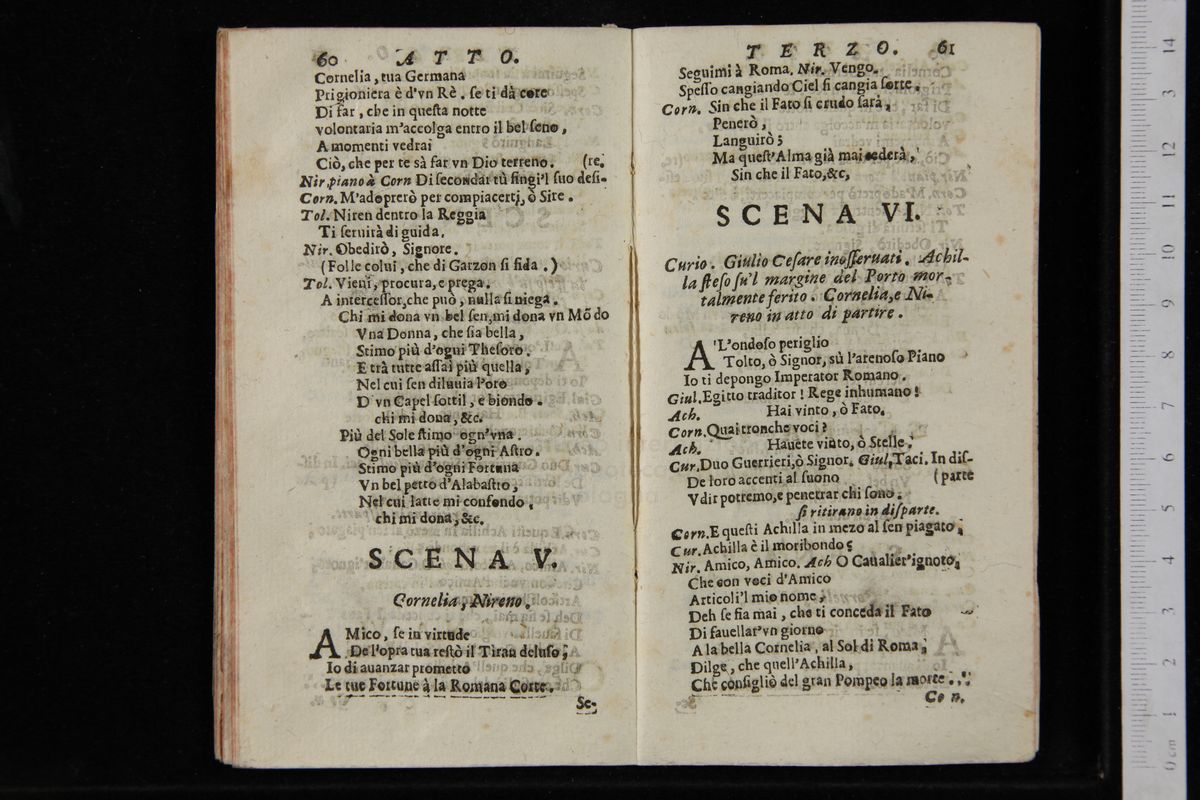 60 ATTO.
Cornelia, tua Germana
Prigioniera è d'vn Rè. se ti dà core
Di far, che in questa notte
volontaria m'accolga entro il bel seno,
A momenti vedrai
Ciò, che per te sà far vn Dio terreno. (re.
Nir. piano à Corn Di secondar tù fingi'l suo desi-
Corn. M'adoprerò per compiacerti, ò Sire.
Tol. Niren dentro la Reggia
Ti seruirà di guida.
Nir. Obedirò, Signore.
(Folle colui, che di Garzon si fida.)
Tol. Vieni, procura, e prega.
A intercessor, che può, nulla si niega.
Chi mi dona vn bel sen, mi dona vn Mõdo
Vna Donna, che sia bella,
Stimo più d'ogni Thesoro.
E trà tutte assai più quella,
Nel cui sen diluuia l'oro
D'vn Capel sottil, e biondo.
chi mi dona, &c.
Più del Sole stimo ogn'vna.
Ogni bella più d'ogni Astro.
Stimo più d'ogni Fortuna
Vn bel petto d'Alabastro,
Nel cui latte mi confondo.
chi mi dona, &c.
SCENA V.
Cornelia, Nireno.
AMico, se in virtude
De l'opra tua restò il Tiran deluso;
Io di auanzar prometto
Le tue Fortune à la Romana Corte.
Se-
TERZO. 61
Seguimi à Roma. Nir. Vengo.
Spesso cangiando Ciel si cangia sorte.
Corn. Sin che il Fato sì crudo sarà,
Penerò,
Languirò;
Ma quest'Alma già mai cederà,
Sin che il Fato, &c,
SCENA VI.
Curio. Giulio Cesare inosseruati. Achil-
la steso su'l margine del Porto mor-
talmente ferito. Cornelia, e Ni-
reno in atto di partire.
A'L'ondoso periglio
Tolto, ò Signor, sù l'arenoso Piano
Io ti depongo Imperator Romano.
Giul. Egitto traditor! Rege inhumano!
Ach. Hai vinto, ò Fato.
Corn. Quai tronche voci?
Ach. Hauete vinto, ò Stelle.
Cur. Duo Guerrieri, ò Signor. Giul. Taci. In dis-
De loro accenti al suono (parte
Vdir potremo, e penetrar chi sono.
si ritirano in disparte.
Corn. E questi Achilla in mezo al sen piagato.
Cur. Achilla è il moribondo?
Nir. Amico, Amico. Ach O Caualier'ignoto,
Che con voci d'Amico
Articoli'l mio nome,
Deh se fia mai, che ti conceda il Fato
Di fauellar'vn giorno
A la bella Cornelia, al Sol di Roma;
Dilge, che quell'Achilla,
Che consigliò del gran Pompeo la morte..
Co n.